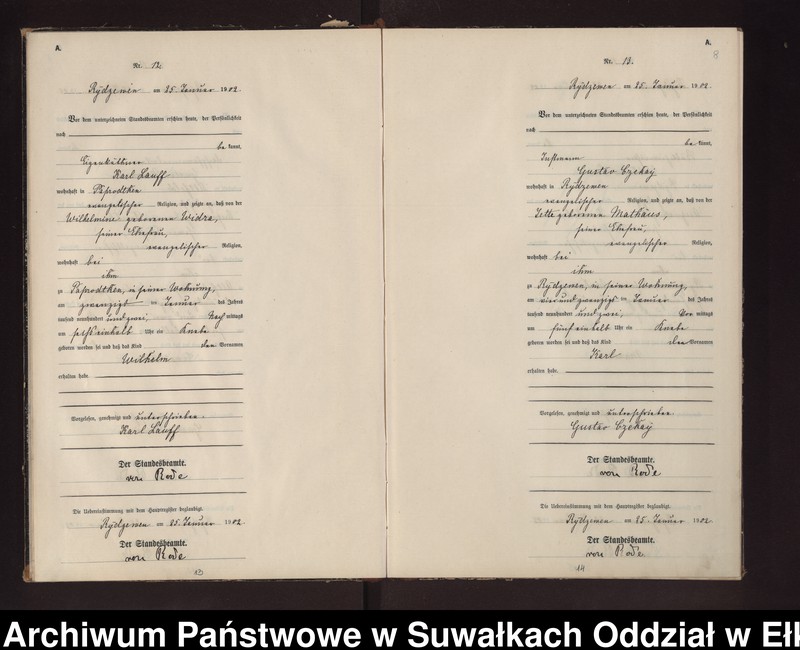 A.
Nr. 12.
Rydzewen am 25. Januar 1902.
Vor dem unterzeichneten Standesbeamten erschien heute, der Persönlichkeit
nach
bekannt,
Eigenkäthner
Karl Lauff
wohnhaft in Paprodtken
evangelischer Religion, und zeigte an, daß von der
Wilhelmine geborenen Widra,
seiner Ehefrau,
evangelischer Religion,
wohnhaft bei
ihm
zu Paprodtken, in seiner Wohnung,
am zwanzigsten Januar des Jahres
tausend neunhundert und zwei, Nachmittags
um sechs einhalb Uhr ein Knabe
geboren worden sei und daß das Kind den Vornamen
Wilhelm
erhalten habe.
Vorgelesen, genehmigt und unterschrieben.
Karl Lauff
Der Standesbeamte.
von Rode
Die Uebereinstimmung mit dem Hauptregister beglaubigt.
Rydzewen am 25. Januar 1902.
Der Standesbeamte.
von Rode
13
A.
8
Nr. 13.
Rydzewen am 25. Januar 1902.
Vor dem unterzeichneten Standesbeamten erschien heute, der Persönlichkeit
nach
bekannt,
Instmann
Gustav Czekay
wohnhaft in Rydzewen
evangelischer Religion, und zeigte an, daß von der
Jette geborenen Mathäus,
seiner Ehefrau,
evangelischer Religion,
wohnhaft bei
ihm
zu Rydzewen, in seiner Wohnung,
am vierundzwanzigsten Januar des Jahres
tausend neunhundert und zwei, Vormittags
um fünf einhalb Uhr ein Knabe
geboren worden sei und daß das Kind den Vornamen
Karl
erhalten habe.
Vorgelesen, genehmigt und unterschrieben
Gustav Czekay
Der Standesbeamte.
von Rode
Die Uebereinstimmung mit dem Hauptregister beglaubigt.
Rydzewen am 25. Januar 1902.
Der Standesbeamte.
von Rode.
14
Archiwum Państwowe w Suwałkach Oddział w Ełk